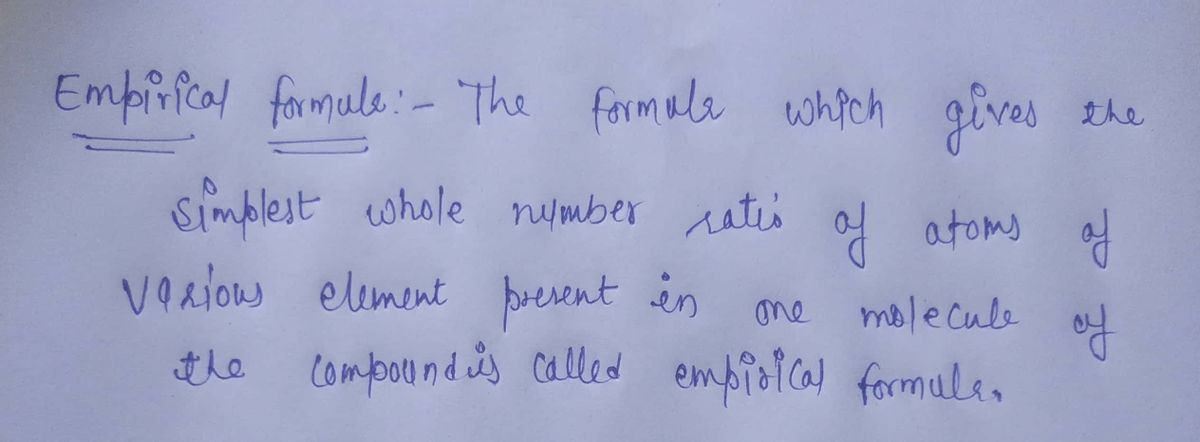 Empirical formula:- The formula which gives the
simplest whole number ratio of atoms of
various element present in one molecule of
the compound is called empirical formula.